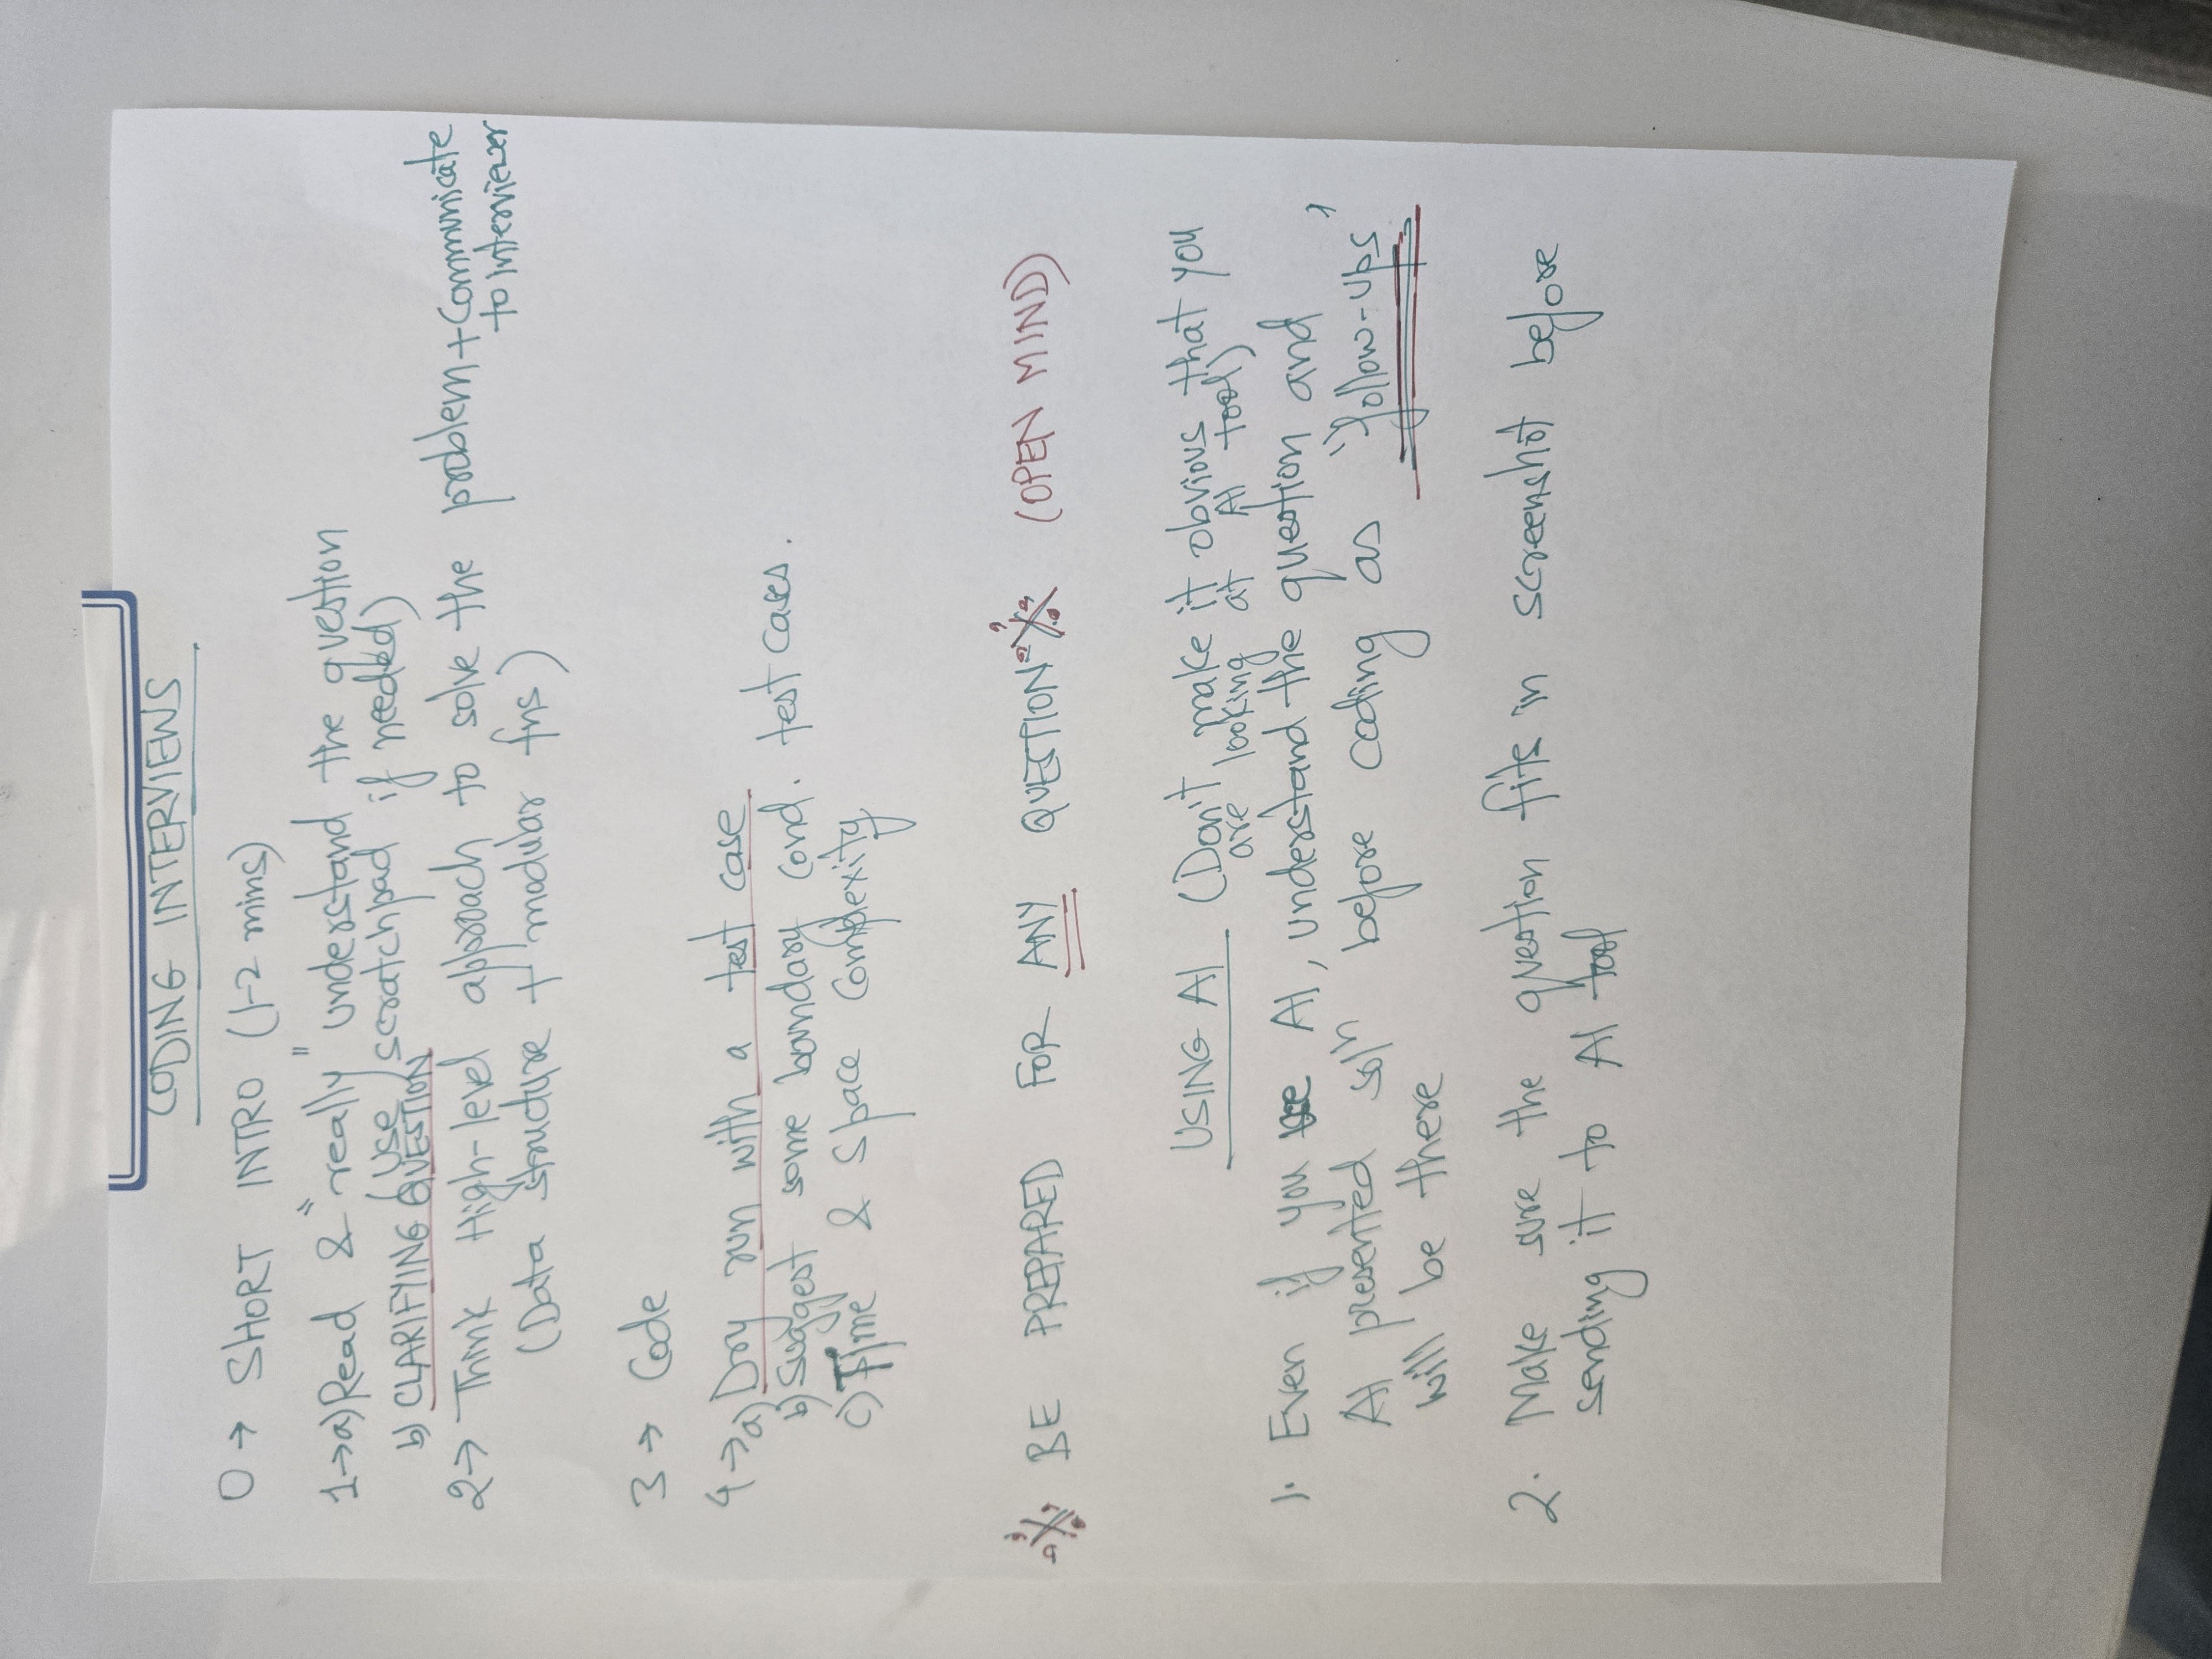 CODING INTERVIEWS
0 → SHORT INTRO (1-2 mins)
1→a) Read & "really" understand the question
(Use scratchpad if needed)
b) CLARIFYING QUESTION
2→ Think High-level approach to solve the problem + Communicate
to interviewer
(Data structure + modular fns)
3 → Code
4→a) Dry run with a test case
b) Suggest some boundary cond. test cases.
c) Time & Space Complexity
BE PREPARED FOR ANY QUESTION (OPEN MIND)
USING AI (Don't make it obvious that you
are looking at AI tool)
1. Even if you use AI, understand the question and
AI presented solⁿ before coding as "follow-ups"
will be there
2. Make sure the question fits in screenshot before
sending it to AI tool